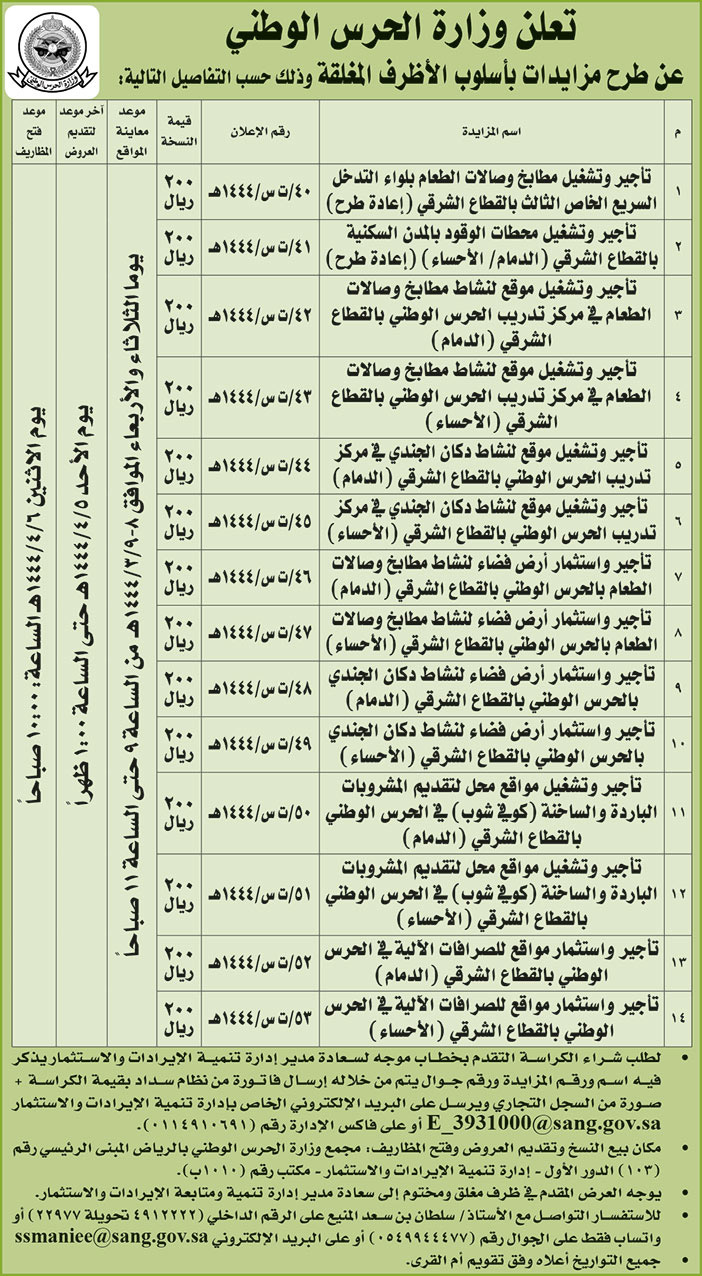 تعلن وزارة الحرس الوطني
عن طرح مزايدات بأسلوب الأظرف المغلقة وذلك حسب التفاصيل التالية:
وزارة الحرس الوطني
م
اسم المزايدة
رقم الإعلان
قيمة النسخة
موعد معاينة المواقع
آخر موعد لتقديم العروض
موعد فتح المظاريف
١
تأجير وتشغيل مطابخ وصالات الطعام بلواء التدخل
السريع الخاص الثالث بالقطاع الشرقي (إعادة طرح)
٤٠/ت س/١٤٤٤هـ
٢٠٠ ريال
٢
تأجير وتشغيل محطات الوقود بالمدن السكنية
بالقطاع الشرقي (الدمام/ الأحساء) (إعادة طرح)
٤١/ت س/١٤٤٤هـ
٢٠٠ ريال
٣
تأجير وتشغيل موقع لنشاط مطابخ وصالات
الطعام في مركز تدريب الحرس الوطني بالقطاع
الشرقي (الدمام)
٤٢/ت س/١٤٤٤هـ
٢٠٠ ريال
٤
تأجير وتشغيل موقع لنشاط مطابخ وصالات
الطعام في مركز تدريب الحرس الوطني بالقطاع
الشرقي (الأحساء)
٤٣/ت س/١٤٤٤هـ
٢٠٠ ريال
٥
تأجير وتشغيل موقع لنشاط دكان الجندي في مركز
تدريب الحرس الوطني بالقطاع الشرقي (الدمام)
٤٤/ت س/١٤٤٤هـ
٢٠٠ ريال
٦
تأجير وتشغيل موقع لنشاط دكان الجندي في مركز
تدريب الحرس الوطني بالقطاع الشرقي (الأحساء)
٤٥/ت س/١٤٤٤هـ
٢٠٠ ريال
٧
تأجير واستثمار أرض فضاء لنشاط مطابخ وصالات
الطعام بالحرس الوطني بالقطاع الشرقي (الدمام)
٤٦/ت س/١٤٤٤هـ
٢٠٠ ريال
٨
تأجير واستثمار أرض فضاء لنشاط مطابخ وصالات
الطعام بالحرس الوطني بالقطاع الشرقي (الأحساء)
٤٧/ت س/١٤٤٤هـ
٢٠٠ ريال
٩
تأجير واستثمار أرض فضاء لنشاط دكان الجندي
بالحرس الوطني بالقطاع الشرقي (الدمام)
٤٨/ت س/١٤٤٤هـ
٢٠٠ ريال
١٠
تأجير واستثمار أرض فضاء لنشاط دكان الجندي
بالحرس الوطني بالقطاع الشرقي (الأحساء)
٤٩/ت س/١٤٤٤هـ
٢٠٠ ريال
١١
تأجير وتشغيل مواقع محل لتقديم المشروبات
الباردة والساخنة (كوفي شوب) في الحرس الوطني
بالقطاع الشرقي (الدمام)
٥٠/ت س/١٤٤٤هـ
٢٠٠ ريال
١٢
تأجير وتشغيل مواقع محل لتقديم المشروبات
الباردة والساخنة (كوفي شوب) في الحرس الوطني
بالقطاع الشرقي (الأحساء)
٥١/ت س/١٤٤٤هـ
٢٠٠ ريال
١٣
تأجير واستثمار مواقع للصرافات الآلية في الحرس
الوطني بالقطاع الشرقي (الدمام)
٥٢/ت س/١٤٤٤هـ
٢٠٠ ريال
١٤
تأجير واستثمار مواقع للصرافات الآلية في الحرس
الوطني بالقطاع الشرقي (الأحساء)
٥٣/ت س/١٤٤٤هـ
٢٠٠ ريال
يوما الثلاثاء والأربعاء الموافق ٨-١٤٤٤/٣/٩هـ من الساعة ٩ حتى الساعة ١١ صباحاً
يوم الأحد ١٤٤٤/٤/٥هـ حتى الساعة ١:٠٠ ظهراً
يوم الاثنين ١٤٤٤/٤/٦هـ الساعة: ١٠:٠٠ صباحاً
• لطلب شراء الكراسة التقدم بخطاب موجه لسعادة مدير إدارة تنمية الإيرادات والاستثمار يذكر
فيه اسم ورقم المزايدة ورقم جوال يتم من خلاله إرسال فاتورة من نظام سداد بقيمة الكراسة +
صورة من السجل التجاري ويرسل على البريد الإلكتروني الخاص بإدارة تنمية الإيرادات والاستثمار
E_3931000@sang.gov.sa أو على فاكس الإدارة رقم (٠١١٤٩١٠٦٩١).
• مكان بيع النسخ وتقديم العروض وفتح المظاريف: مجمع وزارة الحرس الوطني بالرياض المبنى الرئيسي رقم
(١٠٣) الدور الأول - إدارة تنمية الإيرادات والاستثمار - مكتب رقم (١٠١٠ب).
• يوجه العرض المقدم في ظرف مغلق ومختوم إلى سعادة مدير إدارة تنمية ومتابعة الإيرادات والاستثمار.
• للاستفسار التواصل مع الأستاذ/ سلطان بن سعد المنيع على الرقم الداخلي (٤٩١٢٢٢٢ تحويلة ٢٢٩٧٧) أو
واتساب فقط على الجوال رقم (٠٥٤٩٩٤٤٤٧٧) أو على البريد الإلكتروني ssmaniee@sang.gov.sa
• جميع التواريخ أعلاه وفق تقويم أم القرى.